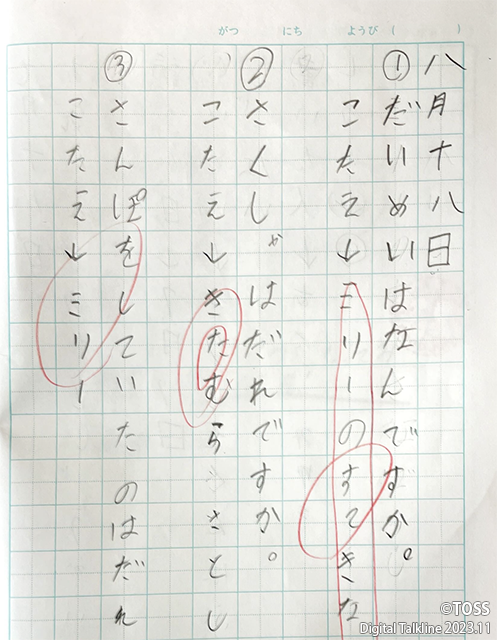 がつ にち ようび( )
八月十八日
①だいめいはなんですか。
こたえ↓ミリーのすてきな
②さくしゃはだれですか。
こたえ↓きたむらさとし
③さんぽをしていたのはだれ
こたえ↓ミリー
©TOSS
Digital Talkline 2023.11